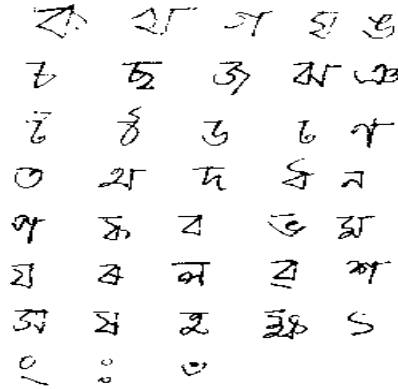 ক খ গ ঘ ঙ
চ ছ জ ঝ ঞ
ট ঠ ড ঢ ণ
ত থ দ ধ ন
প ফ ব ভ ম
য ৰ ল ৱ শ
স ষ হ ক্ষ ৎ
ং ঃ ঁ